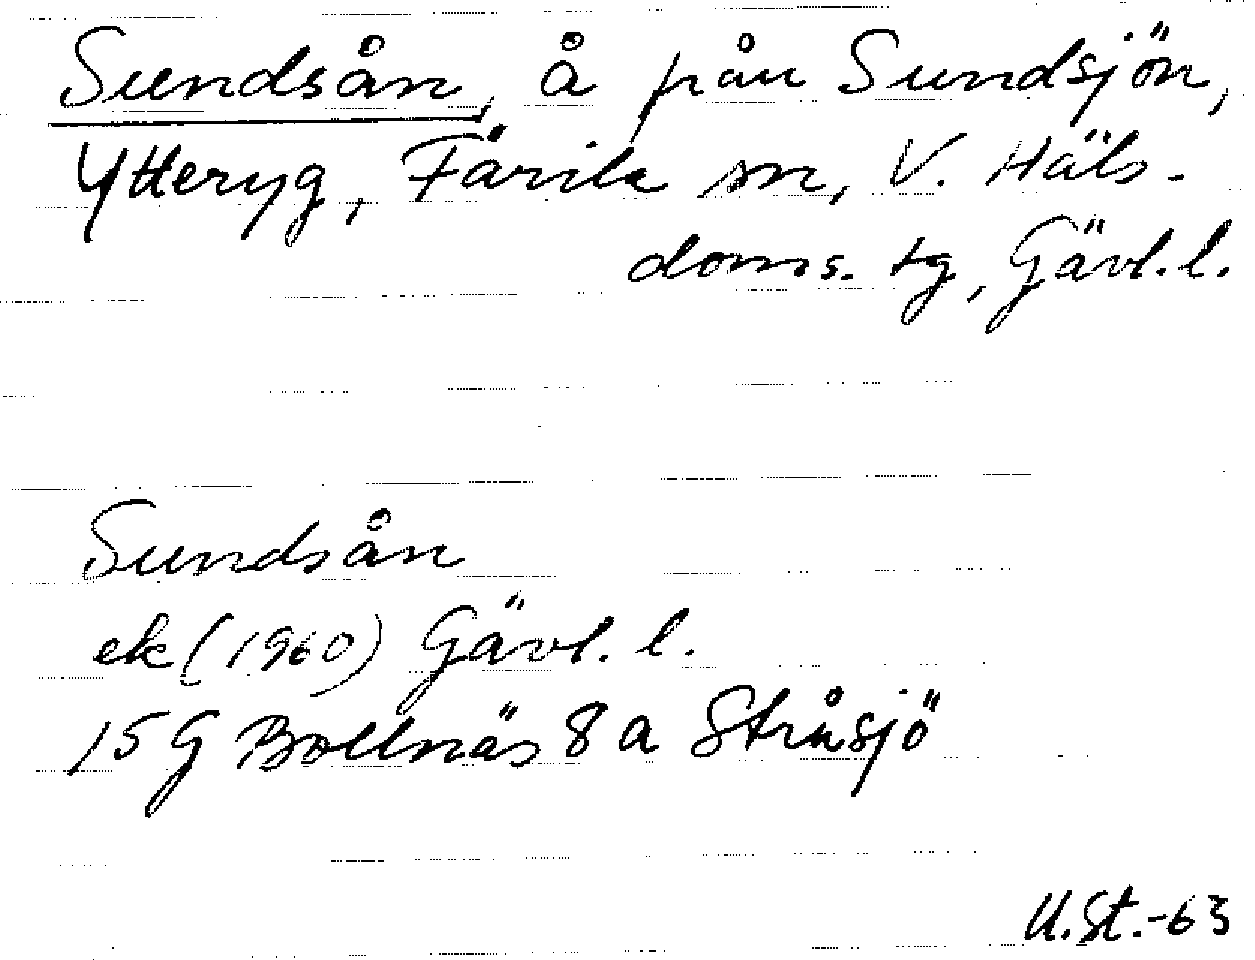 Sundsån, å från Sundsjön,
Ytteryg, Färila sn, V. Häls-
doms. tg, Gävl. l.
Sundsån
ek (1960) Gävl. l.
15 G Bollnäs 8 a Stråsjö
U.St.-63